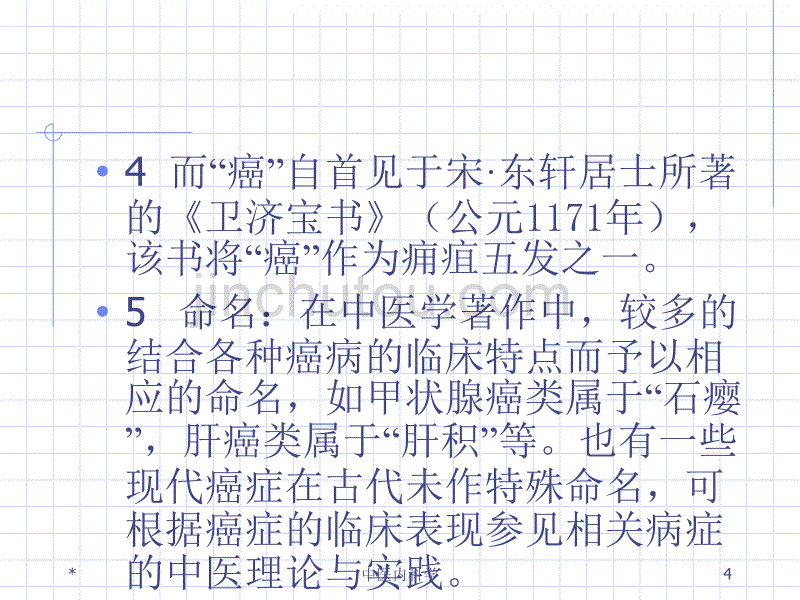 4 而“癌”自首见于宋·东轩居士所著
的《卫济宝书》（公元1171年），
该书将“癌”作为痈疽五发之一。
jinchutou.com
5 命名：在中医学著作中，较多的
结合各种癌病的临床特点而予以相
应的命名，如甲状腺癌类属于“石瘿
”，肝癌类属于“肝积”等。也有一些
现代癌症在古代未作特殊命名，可
根据癌症的临床表现参见相关病症
的中医理论与实践。
* 中医内科学 4